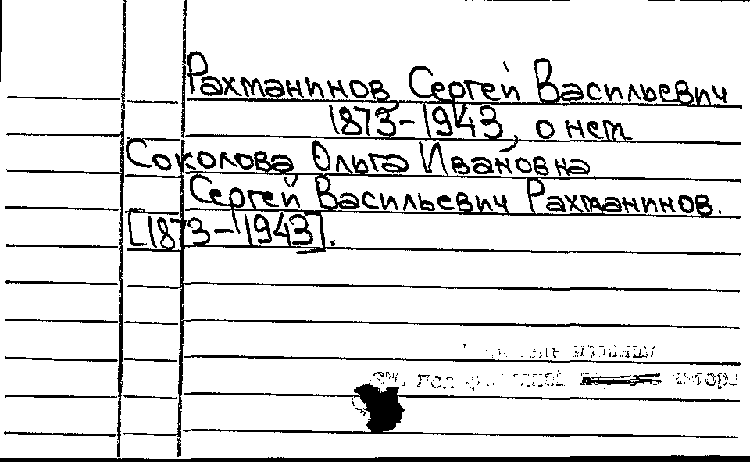 Рахманинов Сергей Васильевич
1873–1943, о нем
Соколова Ольга Ивановна
Сергей Васильевич Рахманинов.
[1873–1943].
см. под фамилией автора